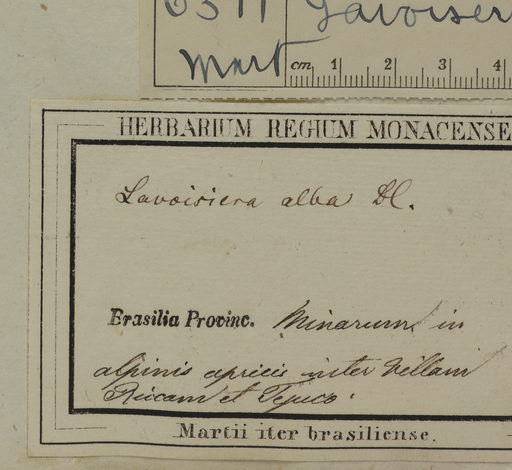 Lavoisier
Mart
cm 1 2 3 4
HERBARIUM REGIUM MONACENSE
Lavoisiera alba Dl.
Brasilia Provinc. Minarum, in
alpinis apricis inter Villam
Ricam et Tejuco.
Martii iter brasiliense.